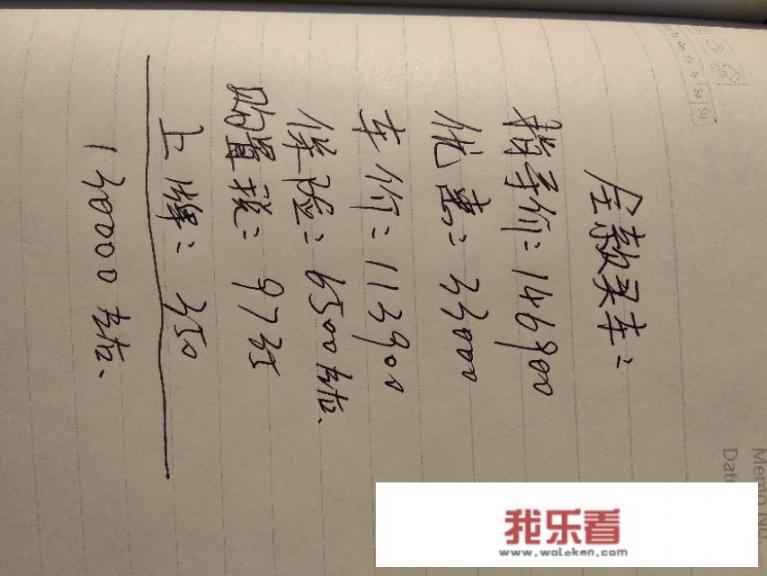 Memo No.
Dat
全款买车:
指导价:146900
优惠:33000
车价:113900
保险:6500左右.
购置税:9735
上牌:350
130000左右.
我乐看
www.woleken.com